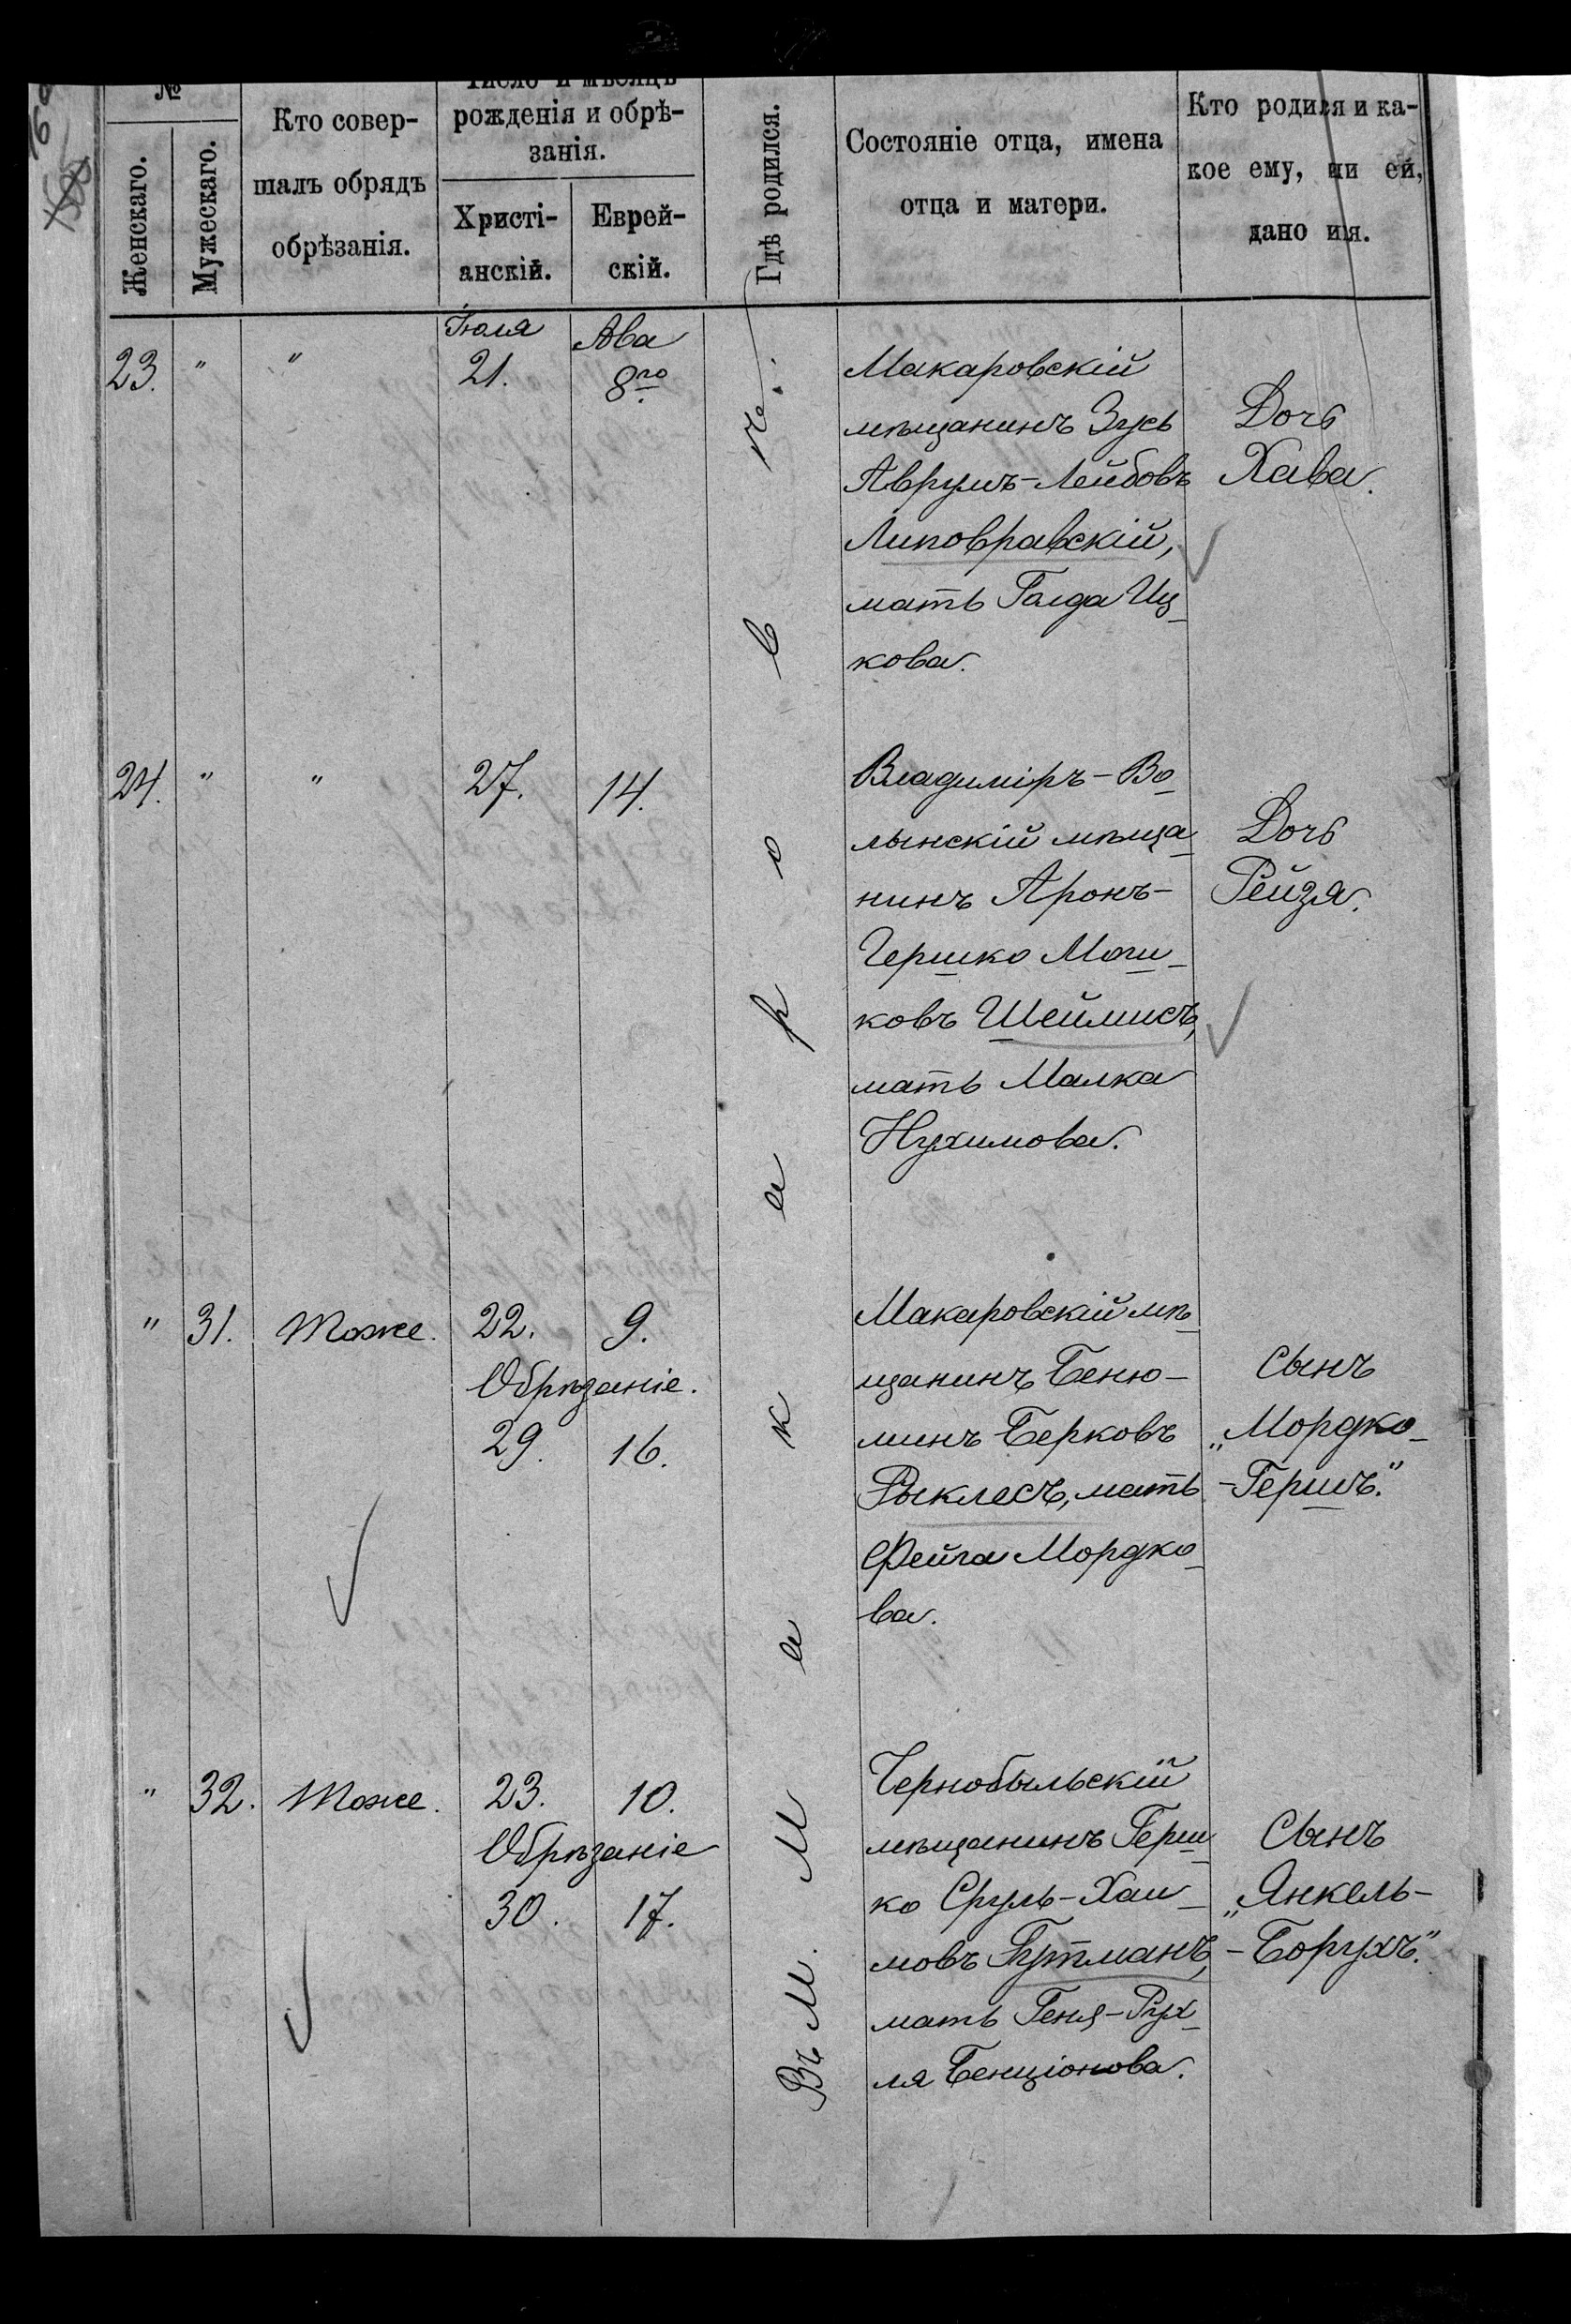 №
Женскаго.
Мужескаго.
Кто совер-
шалъ обрядъ
обрѣзанія.
Число и мѣсяцъ
рожденія и обрѣ-
занія.
Христі-
анскій.
Еврей-
скій.
Гдѣ родился.
Состояніе отца, имена
отца и матери.
Кто родился и ка-
кое ему, или ей,
дано имя.
Въ м. Макаровѣ.
Іюля
Ава
23. " " 21. 8го
Макаровскій
мѣщанинъ Зусь
Аврумъ-Лейбовъ
Липовравскій,
мать Голда Иц-
кова.
Дочь
Хава.
24. " " 27. 14.
Владиміръ-Во-
лынскій мѣща-
нинъ Аронъ-
Гершко Мош-
ковъ Шеймисъ,
мать Малка
Нухимова.
Дочь
Рейзя.
" 31. Тоже. 22. 9.
Обрѣзаніе.
29. 16.
Макаровскій мѣ-
щанинъ Беню-
минъ Берковъ
Рыклесъ, мать
Фейга Мордко-
ва.
Сынъ
„Мордко-
-Гершъ."
" 32. Тоже. 23. 10.
Обрѣзаніе
30. 17.
Чернобыльскій
мѣщанинъ Герш-
ко Сруль-Хаи-
мовъ Гутманъ,
мать Геня-Рух-
ля Бенціонова.
Сынъ
„Янкель-
-Борухъ."